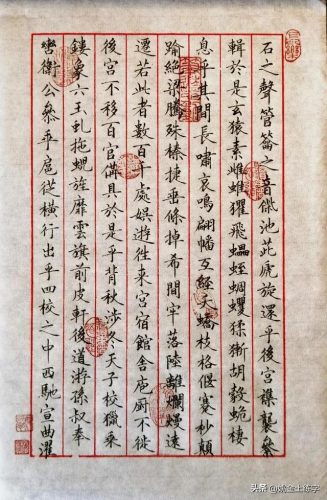 石之聲管籥之音偨池茈虒旋還乎後宮襍襲絫
輯於是玄猿素雌蜼玃飛蠝蛭蜩蠼猱獑胡縠蛫棲
息乎其間長嘯哀鳴翩幡互經夭蟜枝格偃蹇杪顛
踰絶梁騰殊榛捷垂條掉希間牢落陸離爛熳遠
遷若此者數百千處娛遊往来宮宿館舍庖厨不徙
後宮不移百官備具於是乎背秋涉冬天子校獵乘
鏤象六玉虬拖蜺旌靡雲旗前皮軒後道游孫叔奉
轡衛公叅乎扈從橫行出乎四校之中西馳宣曲濯
头条